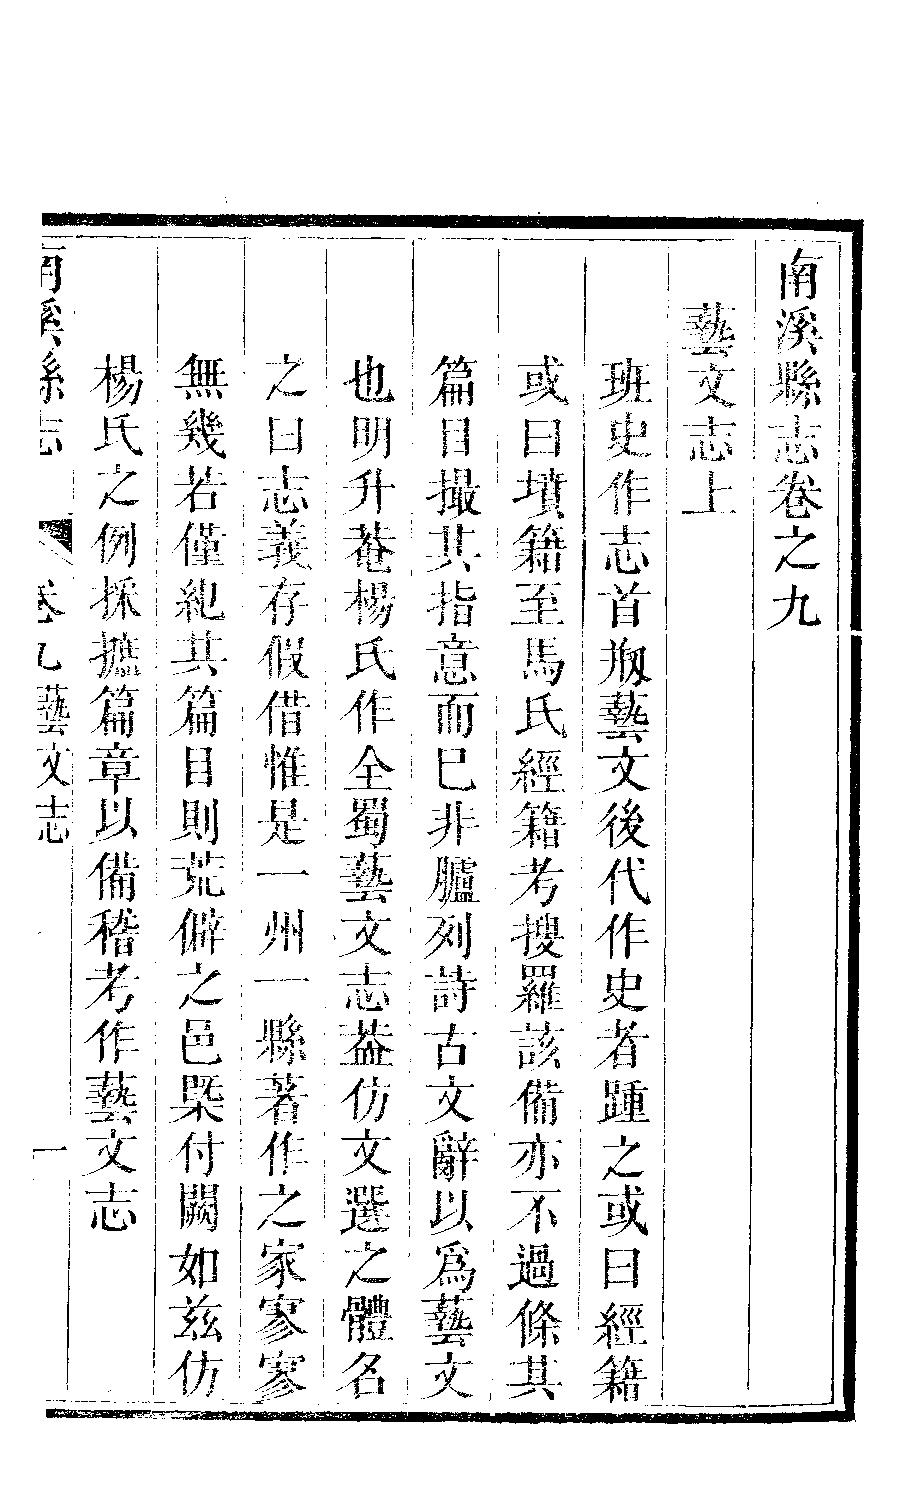 南溪縣志卷之九
藝文志上
班史作志首剏藝文後代作史者踵之或曰經籍
或曰墳籍至馬氏經籍考搜羅該備亦不過條其
篇目撮其指意而已非臚列詩古文辭以爲藝文
也明升菴楊氏作全蜀藝文志葢仿文選之體名
之曰志義存假借惟是一州一縣著作之家寥寥
無幾若僅紀其篇目則荒僻之邑槩付闕如茲仿
楊氏之例採摭篇章以備稽考作藝文志
南溪縣志
卷九藝文志
一